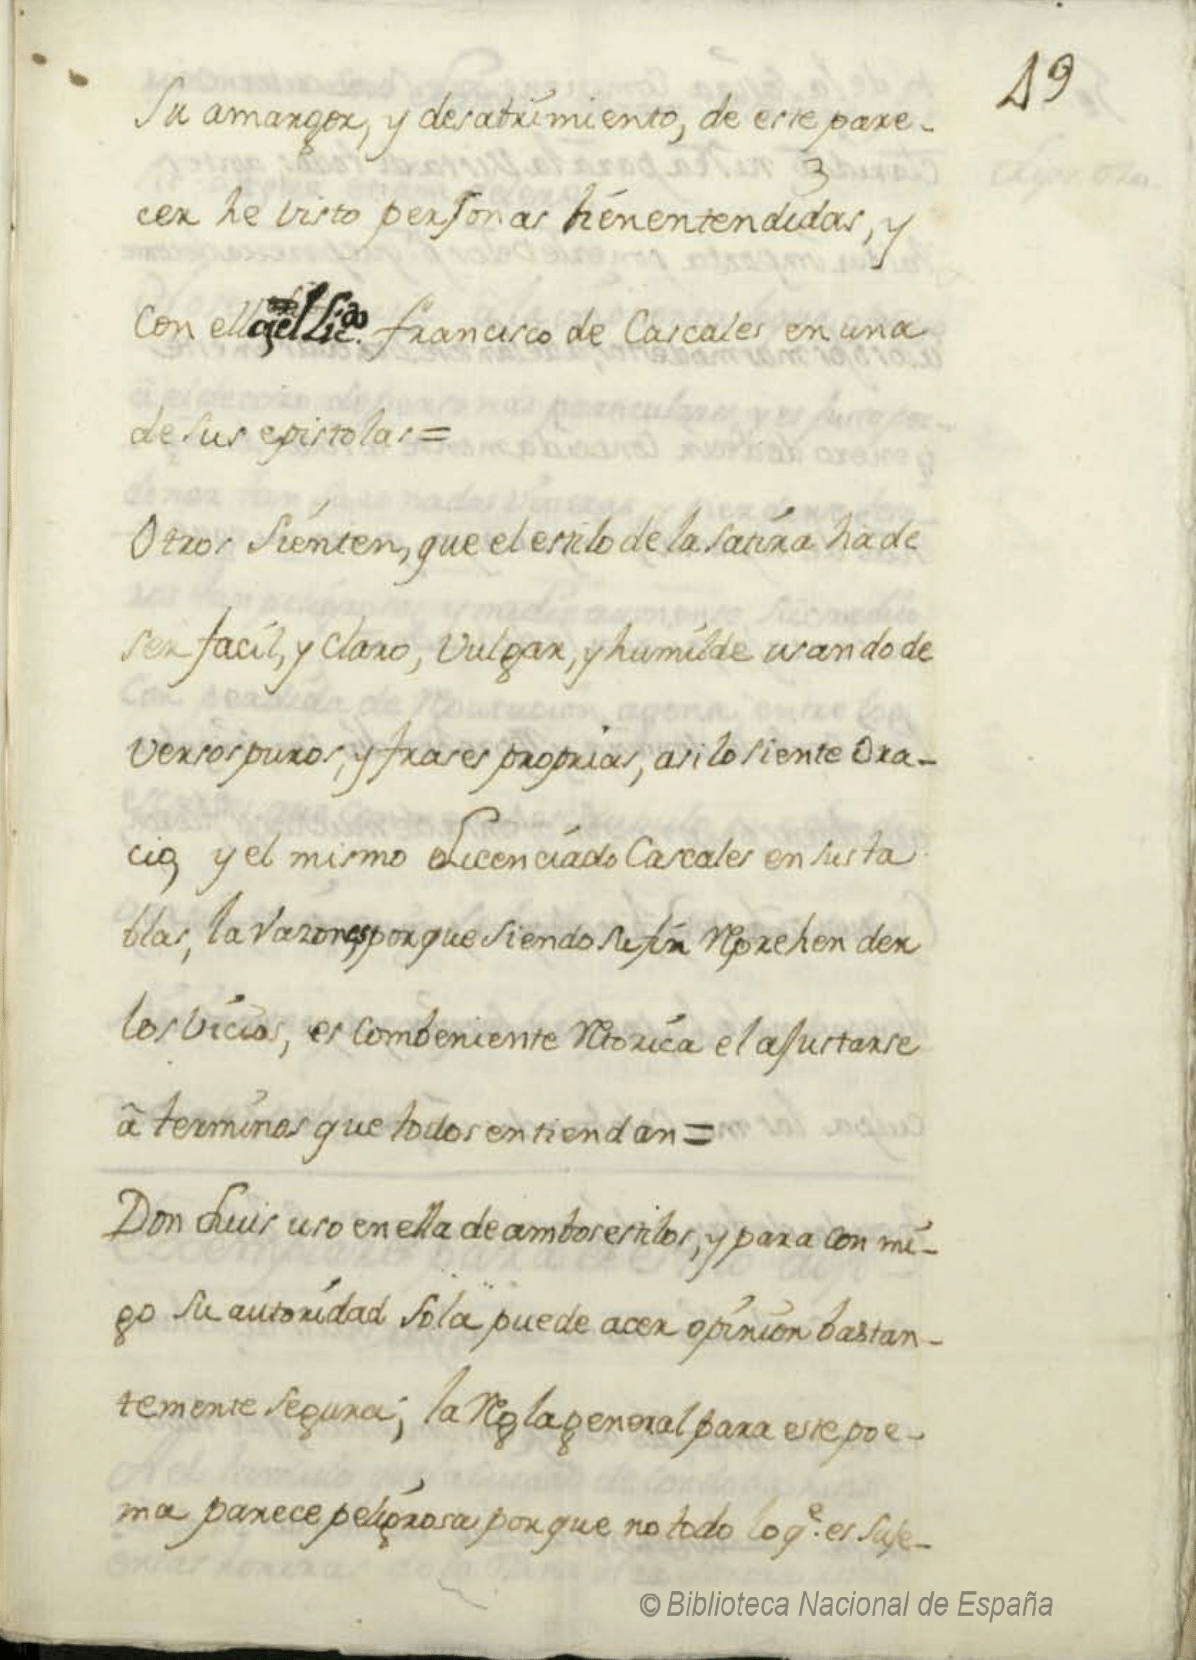 49
su amargor, y desabrimiento, de este pare-
cer he visto personas bienentendidas, y
con ell el Lic.do francisco de Cascales en una
de sus epistolas=
Otros sienten, que el estilo de la satira ha de
ser facil, y claro, vulgar, y humilde usando de
versos puros, y frases proprias, asi lo siente Ora-
cio, y el mismo Licenciado Cascales en sus ta
blas, la razon es porque siendo su fin Reprehender
los vicios, es combeniente Retorica el ajustarse
â terminos que todos entiendan=
Don Luis uso en ella de ambos estilos, y para con mi-
go su autoridad sola puede acer opinion bastan-
temente segura; la Regla general para este poe-
ma parece peligrosa porque no todo lo q.e es suje-
© Biblioteca Nacional de España